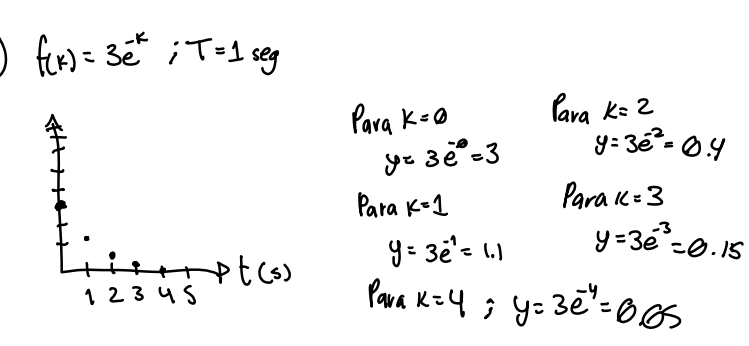 ) f(k) = 3e^-k ; T=1 seg
Para K=0
y= 3e^-0 =3
Para K=1
y= 3e^-1 = 1.1
Para K= 2
y= 3e^-2 = 0.4
Para K=3
y=3e^-3 =0.15
Para K=4 ; y= 3e^-4 = 0.05
t(s)
1 2 3 4 5